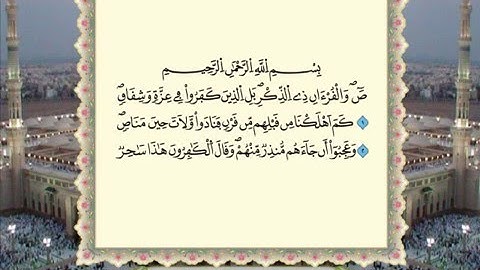 بِسْمِ اِللَّهِ اِلرَّحْمَٰنِ اِلرَّحِيمِ
صَٓ وَالْقُرْءَانِ ذِے اِلذِّكْرِ بَلِ اِلذِينَ كَفَرُواْ فِے عِزَّةٖ وَشِقَاقٖ
١ كَمَ اَهْلَكْنَا مِن قَبْلِهِم مِّن قَرْنٖ فَنَادَواْ وَّلَاتَ حِينَ مَنَاصٖ
٢ وَعَجِبُوٓاْ أَن جَآءَهُم مُّنذِرٞ مِّنْهُمْ وَقَالَ اَلْكَٰفِرُونَ هَٰذَا سَٰحِرٞ